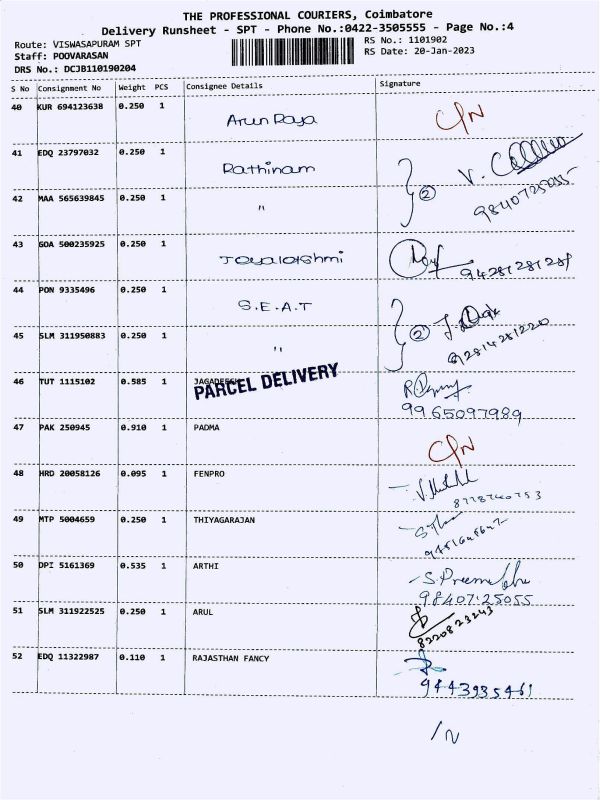 THE PROFESSIONAL COURIERS, Coimbatore
Delivery Runsheet - SPT - Phone No.:0422-3505555 - Page No.:4
Route: VISWASAPURAM SPT RS No.: 1101902
Staff: POOVARASAN RS Date: 20-Jan-2023
DRS No.: DCJB110190204
S No Consignment No Weight PCS Consignee Details Signature
40 KUR 694123638 0.250 1 Arun Raja
41 EDQ 23797032 0.250 1 Rathinam V.
42 MAA 565639845 0.250 1 " 2 9840725055
43 GOA 500235925 0.250 1 Jeyalakshmi
44 PON 9335496 0.250 1 S.E.A.T
45 SLM 311950883 0.250 1 " 2 92814281220
46 TUT 1115102 0.585 1
PARCEL DELIVERY
9965097989
47 PAK 250945 0.910 1 PADMA
48 HRD 20058126 0.095 1 FENPRO
49 MTP 5004659 0.250 1 THIYAGARAJAN
50 DPI 5161369 0.535 1 ARTHI
9840725055
51 SLM 311922525 0.250 1 ARUL
8220823243
52 EDQ 11322987 0.110 1 RAJASTHAN FANCY
9443935461